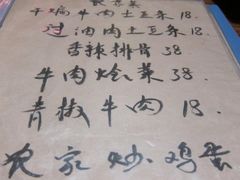 农家菜
干煸牛肉土豆条 18.
过油肉土豆条 18.
香辣排骨 38
牛肉烩菜 38.
青椒牛肉 18.
农家炒鸡蛋